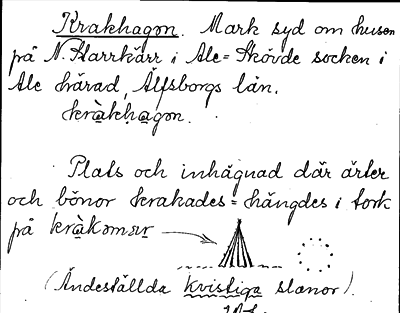 Krakhagon. Mark syd om husen
på N. Harrkärr i Ale=Skövde socken i
Ale härad, Älfsborgs län.
kràkhagon.
Plats och inhägnad där ärter
och bönor krakades = hängdes i tork
på kràkomar
(Ändeställda kvistiga slanor).